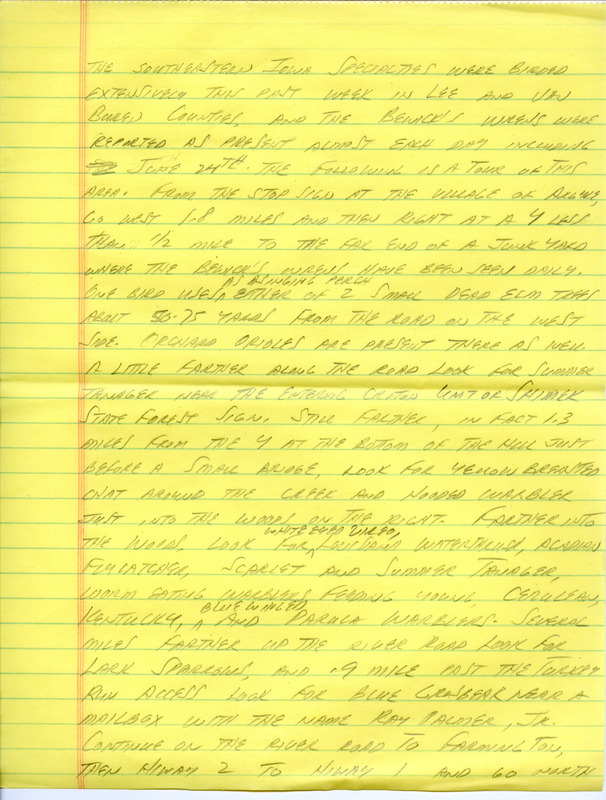 THE SOUTHEASTERN IOWA SPECIALTIES WERE BIRDED
EXTENSIVELY THIS PAST WEEK IN LEE AND VAN
BUREN COUNTIES, AND THE BEWICK'S WRENS WERE
REPORTED AS PRESENT ALMOST EACH DAY INCLUDING
JUNE 24TH. THE FOLLOWING IS A TOUR OF THIS
AREA. FROM THE STOP SIGN AT THE VILLAGE OF ARGYLE,
GO WEST 1.8 MILES AND THEN RIGHT AT A Y LESS
THAN 1/2 MILE TO THE FAR END OF A JUNK YARD
WHERE THE BEWICK'S WRENS HAVE BEEN SEEN DAILY.
AS A SINGING PERCH
ONE BIRD USES EITHER OF 2 SMALL DEAD ELM TREES
ABOUT 50-75 YARDS FROM THE ROAD ON THE WEST
SIDE. ORCHARD ORIOLES ARE PRESENT THERE AS WELL.
A LITTLE FARTHER ALONG THE ROAD LOOK FOR SUMMER
TANAGER NEAR THE ENTERING CROTON UNIT OF SHIMEK
STATE FOREST SIGN. STILL FARTHER, IN FACT 1.3
MILES FROM THE Y AT THE BOTTOM OF THE HILL JUST
BEFORE A SMALL BRIDGE, LOOK FOR YELLOW BREASTED
CHAT AROUND THE CREEK AND HOODED WARBLER
JUST INTO THE WOODS ON THE RIGHT. FARTHER INTO
WHITE EYED VIREO,
THE WOODS, LOOK FOR LOUISIANA WATERTHRUSH, ACADIAN
FLYCATCHER, SCARLET AND SUMMER TANAGER,
WORM EATING WARBLERS FEEDING YOUNG, CERULEAN,
BLUE WINGED
KENTUCKY, AND PARULA WARBLERS. SEVERAL
MILES FARTHER UP THE RIVER ROAD LOOK FOR
LARK SPARROWS, AND .9 MILE PAST THE TURKEY
RUN ACCESS LOOK FOR BLUE GROSBEAK NEAR A
MAILBOX WITH THE NAME RAY PALMER, JR.
CONTINUE ON THE RIVER ROAD TO FARMINGTON,
THEN HIWAY 2 TO HIWAY 1 AND GO NORTH